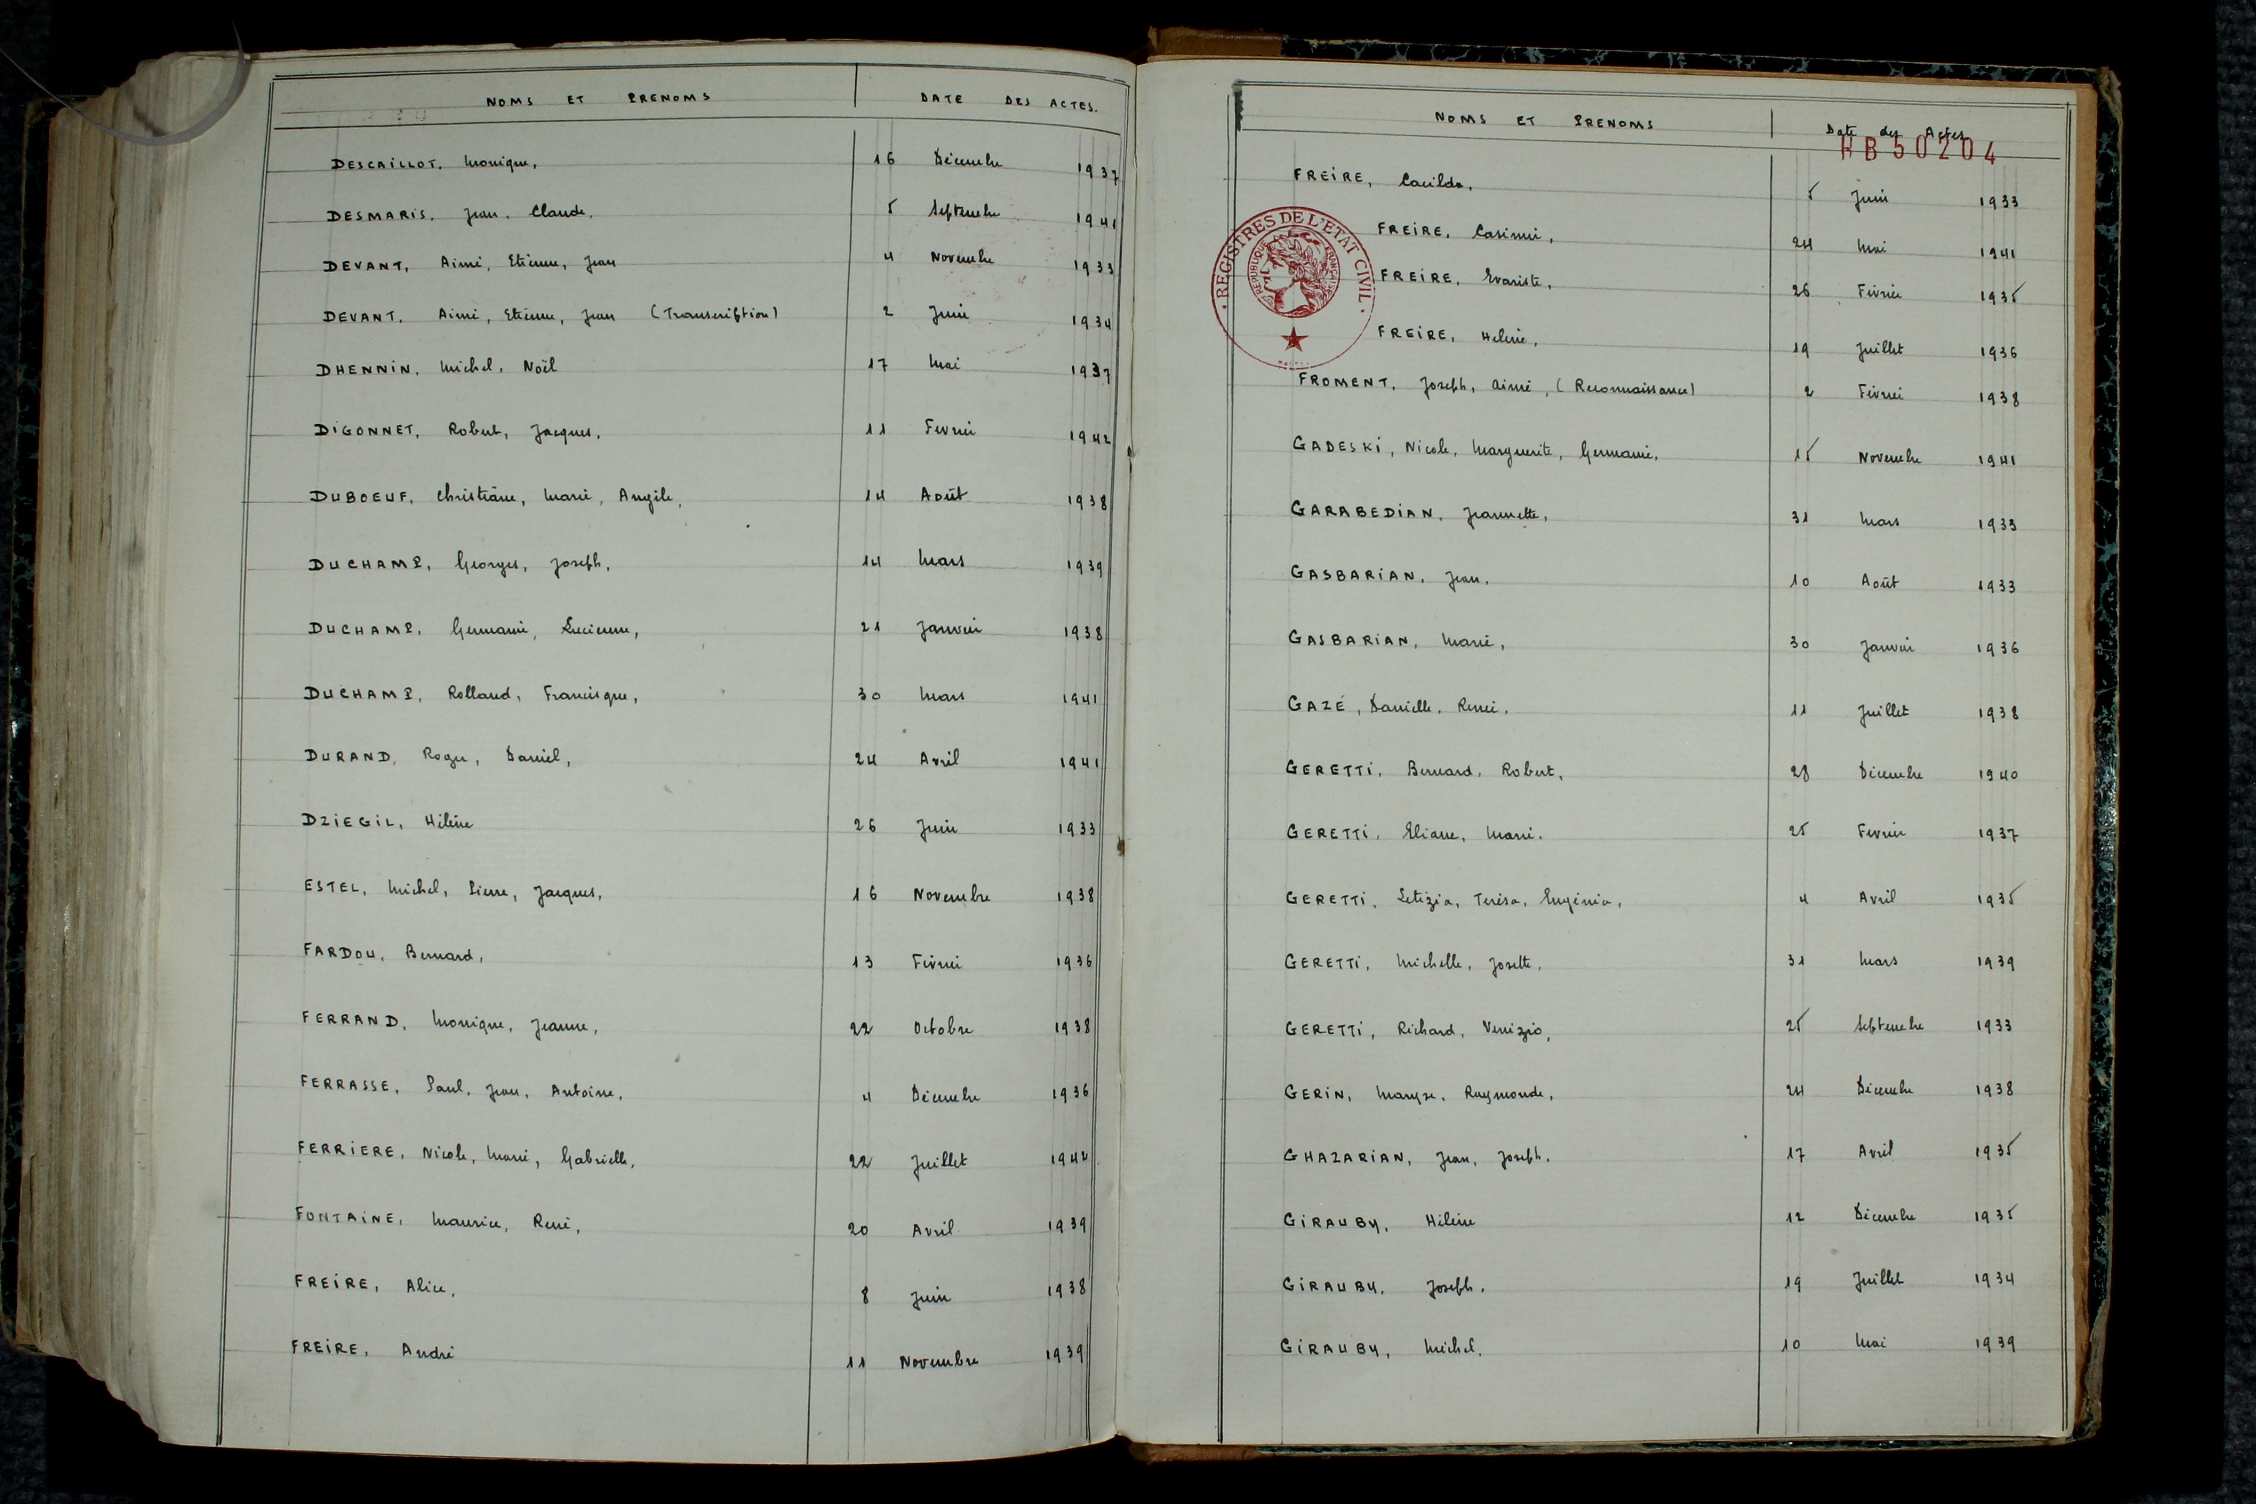 NOMS ET PRENOMS DATE DES ACTES.
DESCAILLOT, Monique, 16 Décembre 1937
DESMARIS, Jean, Claude, 5 Septembre 1941
DEVANT, Aimé, Etienne, Jean 4 Novembre 1933
DEVANT, Aimé, Etienne, Jean (Transcription) 2 Juin 1934
DHENNIN, Michel, Noël 17 Mai 1937
DIGONNET, Robert, Jacques, 11 Fevrier 1942
DUBOEUF, Christiane, Marie, Angèle, 14 Août 1938
DUCHAMP, Georges, Joseph, 14 Mars 1939
DUCHAMP, Germaine, Lucienne, 21 Janvier 1938
DUCHAMP, Rolland, Francisque, 30 Mars 1941
DURAND, Roger, Daniel, 24 Avril 1941
DZIEGIL, Hélène 26 Juin 1933
ESTEL, Michel, Pierre, Jacques, 16 Novembre 1938
FARDOU, Bernard, 13 Février 1936
FERRAND, Monique, Jeanne, 22 Octobre 1938
FERRASSE, Paul, Jean, Antoine, 4 Décembre 1936
FERRIERE, Nicole, Marie, Gabrielle, 22 Juillet
FONTAINE, Maurice, René, 20 Avril 1939
FREIRE, Alice, 8 Juin 1938
FREIRE, André 11 Novembre 1939
NOMS ET PRENOMS Date des Actes
HB50204
FREIRE, 5 Juin 1933
FREIRE, Casimir, 24 Mai 1941
FREIRE, Evariste, 26 Février 1935
FREIRE, Helène, 19 Juillet 1936
REGISTRES DE L'ETAT CIVIL
REPUBLIQUE FRANÇAISE
FROMENT, Joseph, Aimé, (Reconnaissance) 2 Février 1938
GADESKI, Nicole, Marguerite, Germaine, 15 Novembre 1941
GARABEDIAN, Jeannette, 31 Mars 1933
GASBARIAN, Jean, 10 Août 1933
GASBARIAN, Marie, 30 Janvier 1936
GAZÉ, Danielle, Renée, 11 Juillet 1938
GERETTI, Bernard, Robert, 28 Décembre 1940
GERETTI, Eliane, Marie. 25 Fevrier 1937
GERETTI, Letizia, Terésa, Eugénia, 4 Avril 1935
GERETTI, Michelle, Josette, 31 Mars 1939
GERETTI, Richard, Venizio, 25 Septembre 1933
GERIN, Maryse, Raymonde, 24 Décembre 1938
GHAZARIAN, Jean, Joseph. 17 Avril 1935
GIRAUBY, Hélène 12 Décembre 1935
GIRAUBY, Joseph, 19 Juillet 1934
GIRAUBY, Michel, 10 Mai 1939